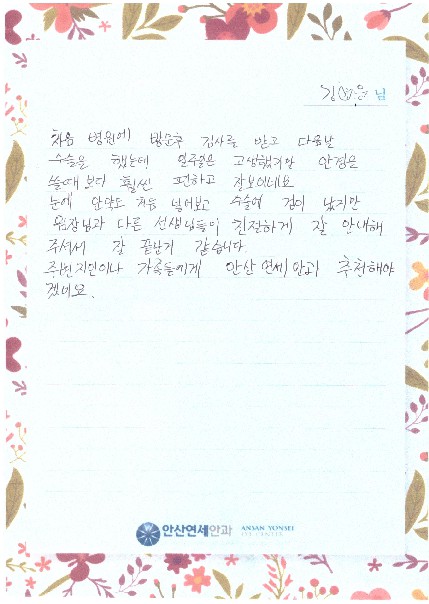 김 님
처음 병원에 방문후 검사를 받고 다음날
수술을 했는데 일주일은 고생했지만 안경을
쓸때 보다 훨씬 편하고 잘보이네요
눈에 안약도 처음 넣어보고 수술에 겁이 났지만
원장님과 다른 선생님들이 친절하게 잘 안내해
주셔서 잘 끝난거 같습니다.
주변지인이나 가족들에게 안산연세안과 추천해야
겠네요.
안산연세안과 ANSAN YONSEI
EYE CENTER